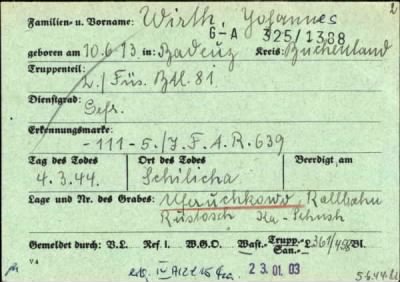 2
Familien- u. Vorname: Wirth, Johannes
G-A 325/1388
geboren am 10.6.13 in: Badeuz Kreis: Buchenland
Truppenteil:
2./Füs. Btl. 81.
Dienstgrad:
Gefr.
Erkennungsmarke:
-111-5./J.F.A.R. 639
Tag des Todes Ort des Todes Beerdigt am
4.3.44. Schilicha
Lage und Nr. des Grabes: Rollbahn
Gemeldet durch: V.L. Ref. I. W.G.O. Wast.- Trupp.- San.- L 361/498 Bl.
V 4
23.01.03
5.6.44